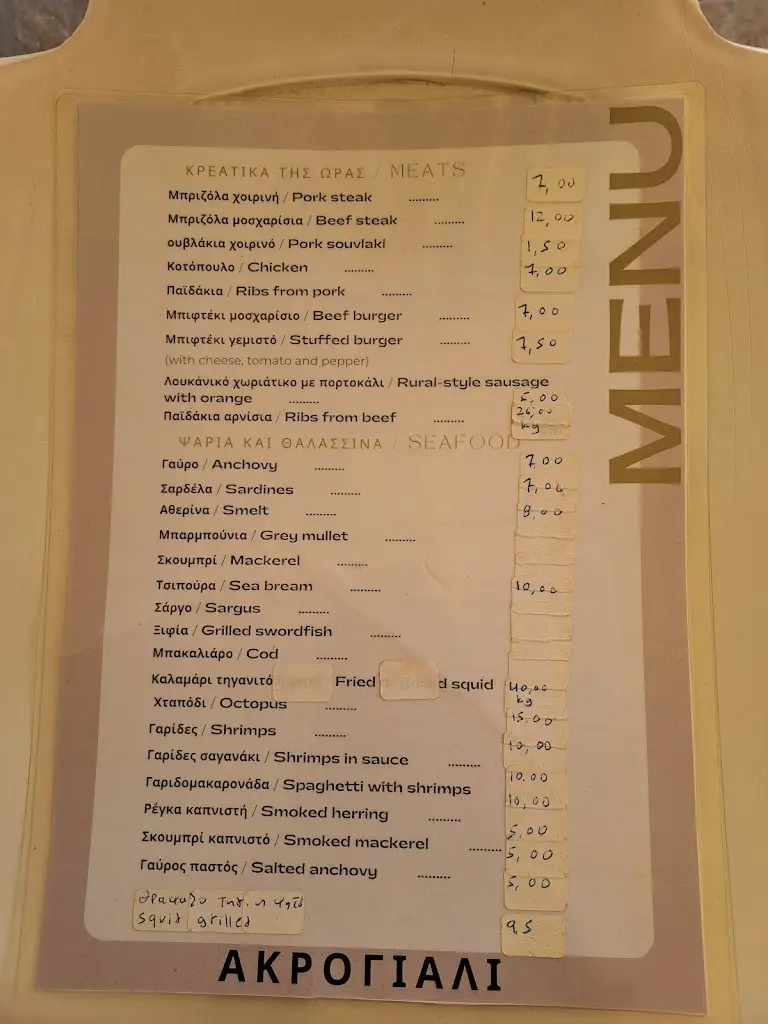 MENU
ΚΡΕΑΤΙΚΑ ΤΗΣ ΩΡΑΣ / MEATS
Μπριζόλα χοιρινή / Pork steak ......... 7,00
Μπριζόλα μοσχαρίσια / Beef steak ......... 12,00
ουβλάκια χοιρινό / Pork souvlaki ......... 1,50
Κοτόπουλο / Chicken ......... 7,00
Παϊδάκια / Ribs from pork .........
Μπιφτέκι μοσχαρίσιο / Beef burger ......... 7,00
Μπιφτέκι γεμιστό / Stuffed burger ......... 7,50
(with cheese, tomato and pepper)
Λουκάνικό χωριάτικο με πορτοκάλι / Rural-style sausage
with orange ......... 5,00
Παϊδάκια αρνίσια / Ribs from beef ......... 26,00 kg
ΨΑΡΙΑ ΚΑΙ ΘΑΛΑΣΣΙΝΑ / SEAFOOD
Γαύρο / Anchovy ......... 7,00
Σαρδέλα / Sardines ......... 7,00
Αθερίνα / Smelt ......... 8,00
Μπαρμπούνια / Grey mullet .........
Σκουμπρί / Mackerel .........
Τσιπούρα / Sea bream ......... 10,00
Σάργο / Sargus .........
Ξιφία / Grilled swordfish .........
Μπακαλιάρο / Cod .........
Καλαμάρι τηγανιτό Fried squid 40,00 kg
Χταπόδι / Octopus ......... 15,00
Γαρίδες / Shrimps ......... 10,00
Γαρίδες σαγανάκι / Shrimps in sauce ......... 10.00
Γαριδομακαρονάδα / Spaghetti with shrimps 10,00
Ρέγκα καπνιστή / Smoked herring ......... 5,00
Σκουμπρί καπνιστό / Smoked mackerel ......... 5,00
Γαύρος παστός / Salted anchovy ......... 5,00
squid grilled 9,5
ΑΚΡΟΓΙΑΛΙ